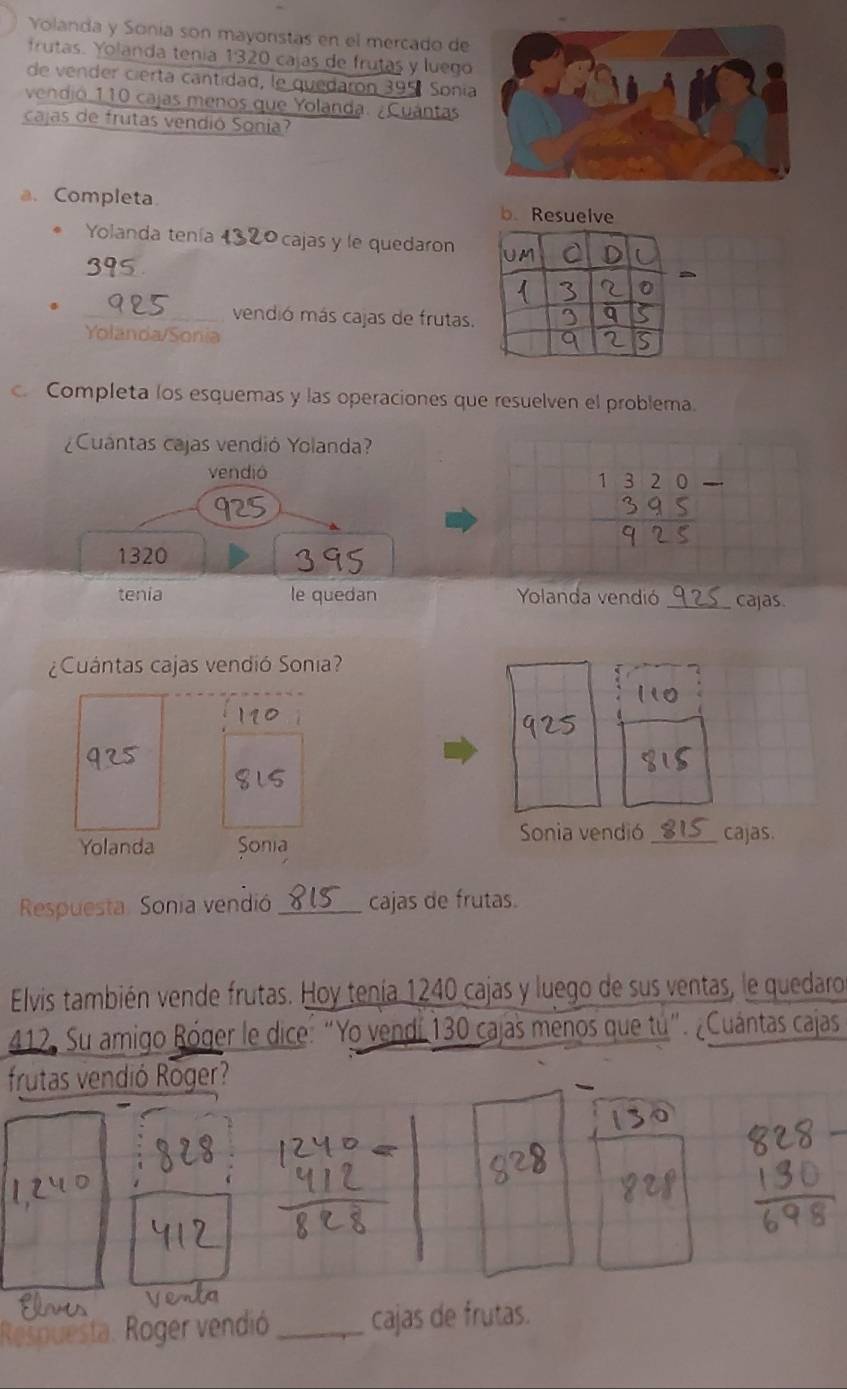 Yolanda y Sonia son mayoristas en el mercado de
frutas. Yolanda tenía 1320 cajas de frutas y luego
de vender cierta cantidad, le quedaron 395. Sonia
vendió 110 cajas menos que Yolanda. ¿Cuántas
cajas de frutas vendió Sonia?
a. Completa.
Yolanda tenía 1320 cajas y le quedaron
395.
925 vendió más cajas de frutas.
Yolanda/Sonia
b. Resuelve
UM C D U
1 3 2 0 -
3 9 5
9 2 5
c. Completa los esquemas y las operaciones que resuelven el problema.
¿Cuántas cajas vendió Yolanda?
vendió
925
1320 395
tenía le quedan
1 3 2 0 -
3 9 5
9 2 5
Yolanda vendió 925 cajas.
¿Cuántas cajas vendió Sonia?
110
925
815
Yolanda Sonia
110
925
815
Sonia vendió 815 cajas.
Respuesta. Sonia vendió 815 cajas de frutas.
Elvis también vende frutas. Hoy tenía 1240 cajas y luego de sus ventas, le quedaro
412. Su amigo Róger le dice: "Yo vendí 130 cajas menos que tú". ¿Cuántas cajas
frutas vendió Roger?
1,240 828 412
1240 -
412
828
828 130 828
828 -
130
698
Elves venta
Respuesta. Roger vendió ______ cajas de frutas.